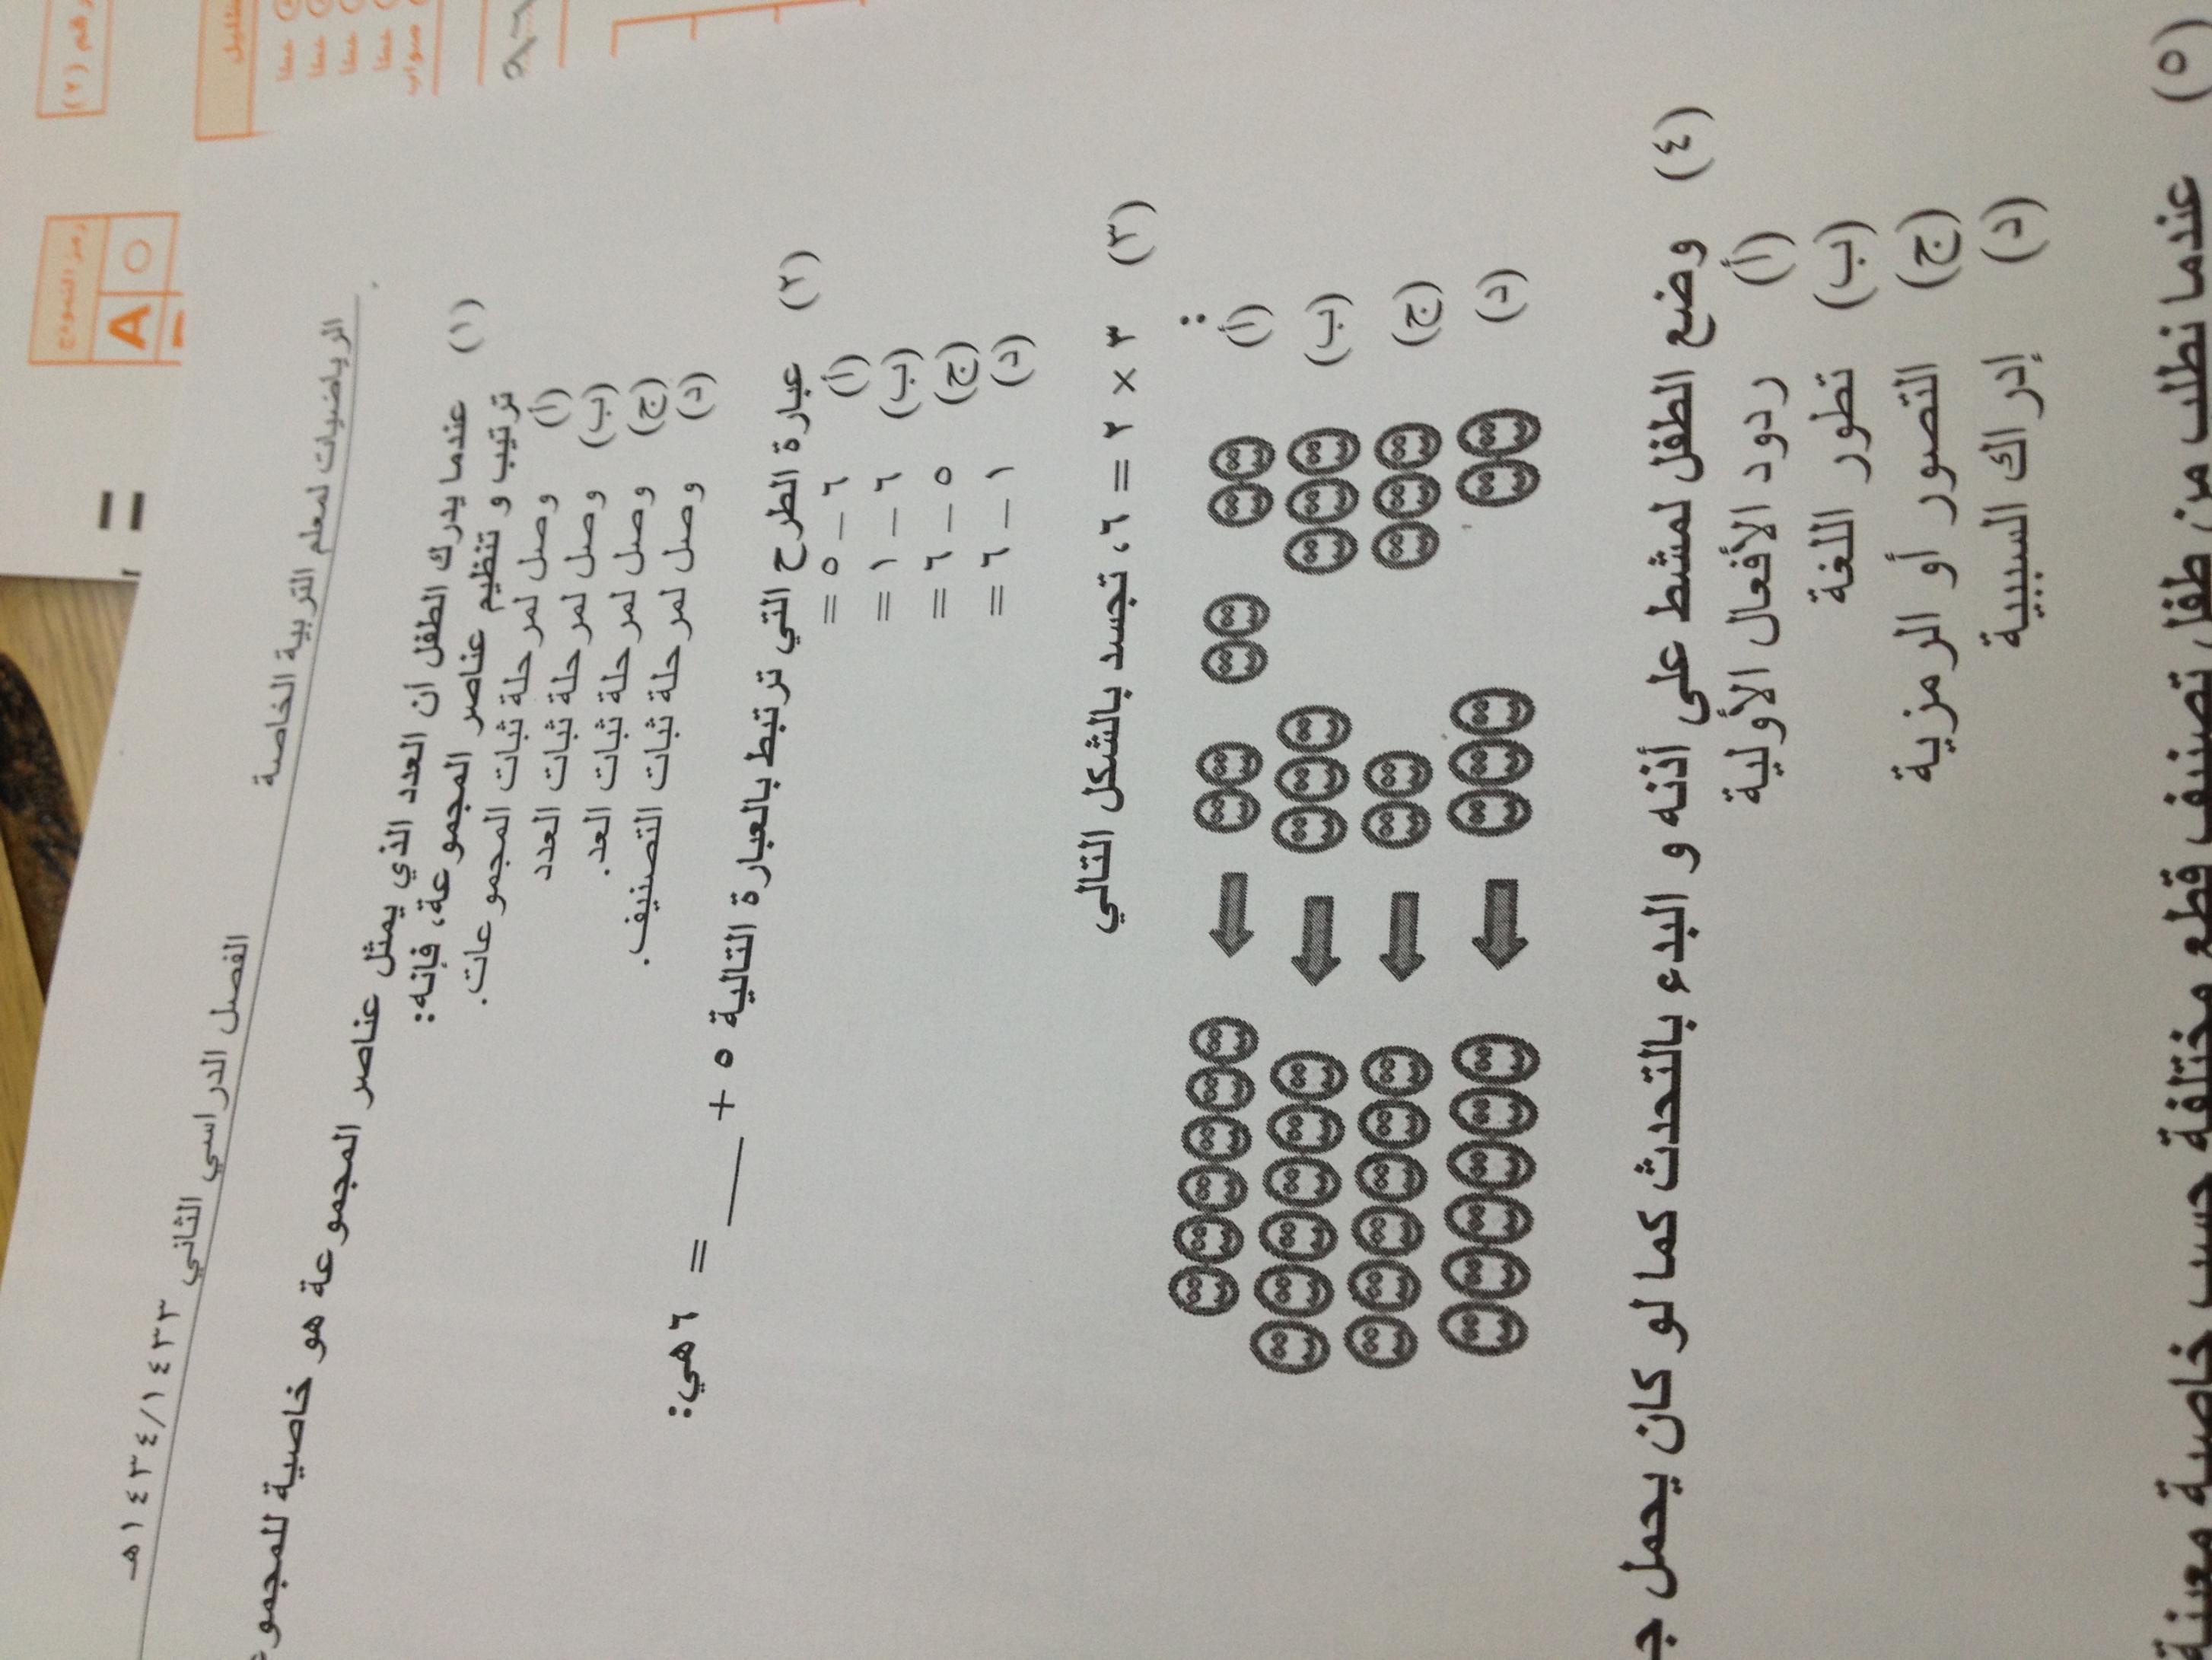 رقم (٢)
رمز النموذج
A
خطأ
خطأ
خطأ
خطأ
صواب
الرياضيات لمعلم التربية الخاصة
الفصل الدراسي الثاني ١٤٣٤/١٤٣٣هـ
(١) عندما يدرك الطفل أن العدد الذي يمثل عناصر المجموعة هو خاصية للمجموعة
ترتيب و تنظيم عناصر المجموعة، فإنه:
(أ) وصل لمرحلة ثبات المجموعات.
(ب) وصل لمرحلة ثبات العدد
(ج) وصل لمرحلة ثبات العد.
(د) وصل لمرحلة ثبات التصنيف.
(٢) عبارة الطرح التي ترتبط بالعبارة التالية ٥ + ___ = ٦ هي:
(أ) ٦ – ٥ =
(ب) ٦ – ١ =
(ج) ٥ – ٦ =
(د) ١ – ٦ =
(٣) ٣ × ٢ = ٦، تجسد بالشكل التالي
:
(أ)
(ب)
(ج)
(د)
(٤) وضع الطفل لمشط على أذنه و البدء بالتحدث كما لو كان يحمل
(أ) ردود الأفعال الأولية
(ب) تطور اللغة
(ج) التصور أو الرمزية
(د) إدراك السببية
(٥) عندما نطلب من طفل تصنيف قطع مختلفة حسب خاصية معينة